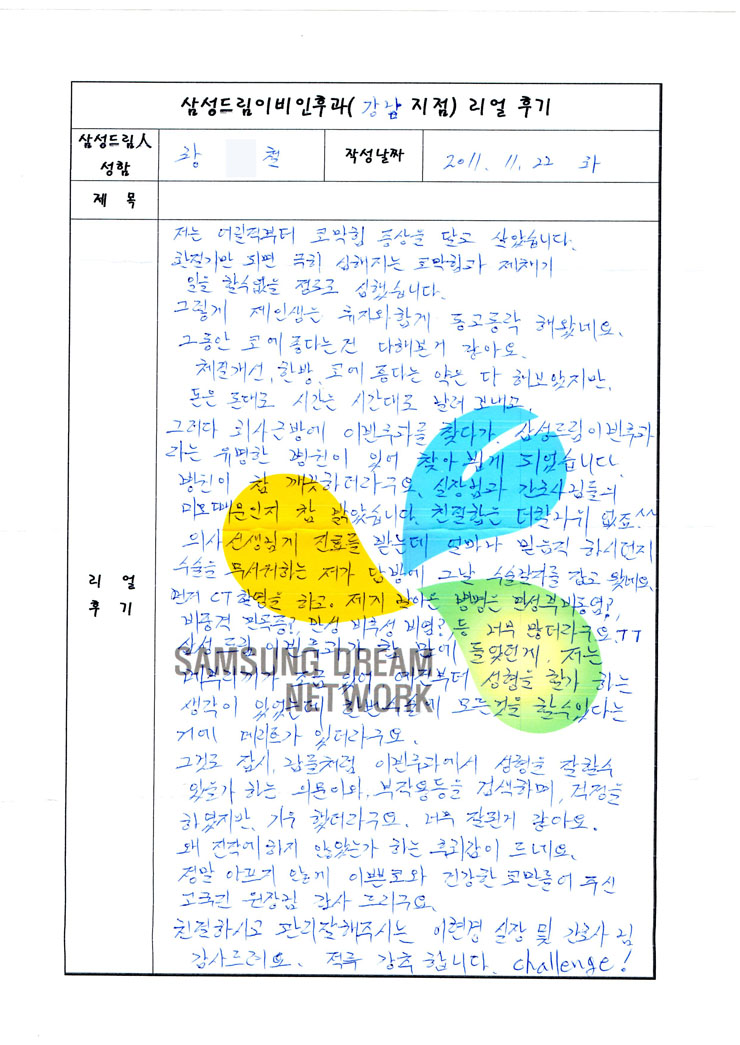 삼성드림이비인후과( 강남 지점) 리얼 후기
삼성드림人 성함
창 철
작성날짜
2011. 11. 22 화
제 목
리 얼 후 기
저는 어릴적부터 코막힘 증상을 달고 살았습니다.
환절기만 되면 특히 심해지는 코막힘과 재채기
일을 할수없을 정도로 심했습니다.
그렇게 제인생은 휴지와함께 동고동락 해왔네요.
그동안 코에 좋다는건 다해본거 같아요.
체질개선, 한방, 코에 좋다는 약은 다 해보았지만,
돈은 돈대로 시간은 시간대로 날려 보내고
그러다 회사근방에 이빈후과를 찾다가, 삼성드림이빈후과
라는 유명한 병원이 있어 찾아 뵙게 되었습니다.
병원이 참 깨끗하더라구요. 실장님과 간호사님들의
미모때문인지 참 밝았습니다. 친절함은 더할나위 없죠.^^
의사선생님께 진료를 받는데 얼마나 믿음직 하시던지
수술을 무서워하는 저가 단방에 그날 수술날짜를 잡고 왔네요.
먼저 CT촬영을 하고. 제가 앓아온 병명은 만성부비동염?,
비중격 만곡증?, 만성 비후성 비염? 등 너무 많더라구요.TT
삼성드림 이빈후과가 참 맘에 들었던게, 저는
매부리끼가 조금 있어 예전부터 성형을 할가 하는
생각이 있었는데 한번수술에 모든것을 할수있다는
거에 메리트가 있더라구요.
그것도 잠시, 이빈후과에서 성형을 잘할수
있을가 하는 의문이와, 부작용등을 검색하며, 걱정을
하였지만, 기우 였더라구요. 너무 잘된거 같아요.
왜 진작에하지 않았는가 하는 후회감이 드네요.
정말 아프지 않게 이쁜코와 건강한 코만들어 주신
원장님 감사 드리구요.
친절하시고 관리잘해주시는 이현경 실장 및 간호사 님
감사드려요. 적극 강추 합니다. challenge!
SAMSUNG DREAM
NETWORK